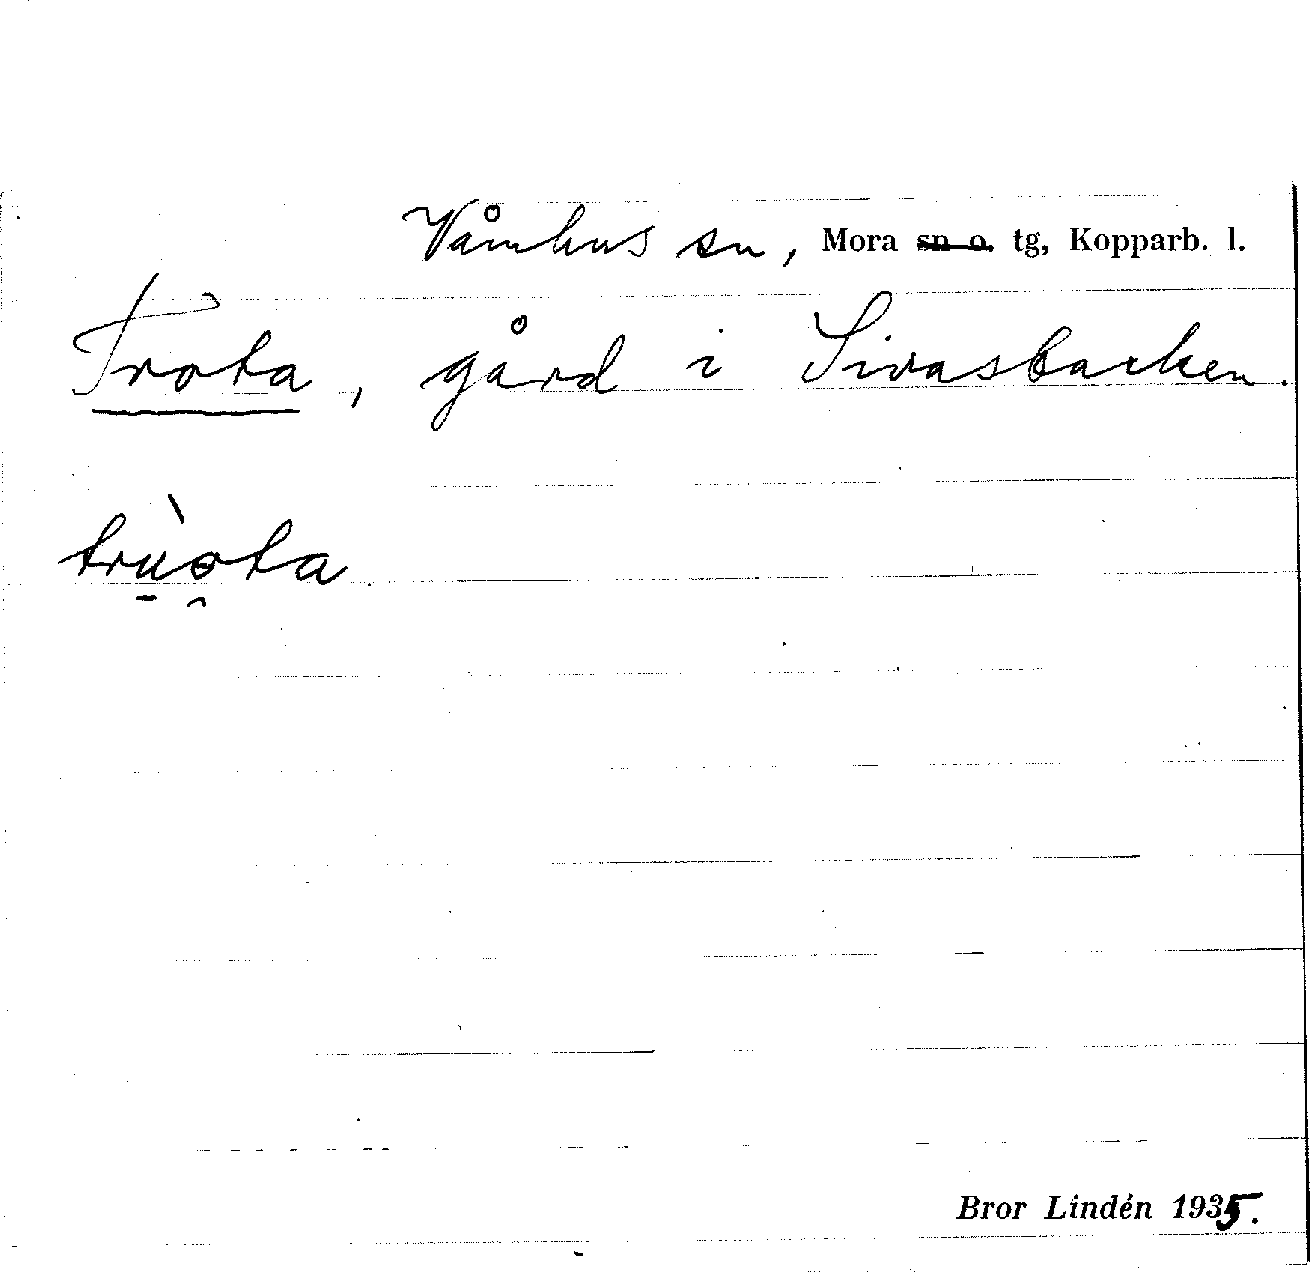 Våmhus sn, Mora sn o. tg, Kopparb. l.
Trota, gård i Sivasbacken.
trùota
Bror Lindén 1935.